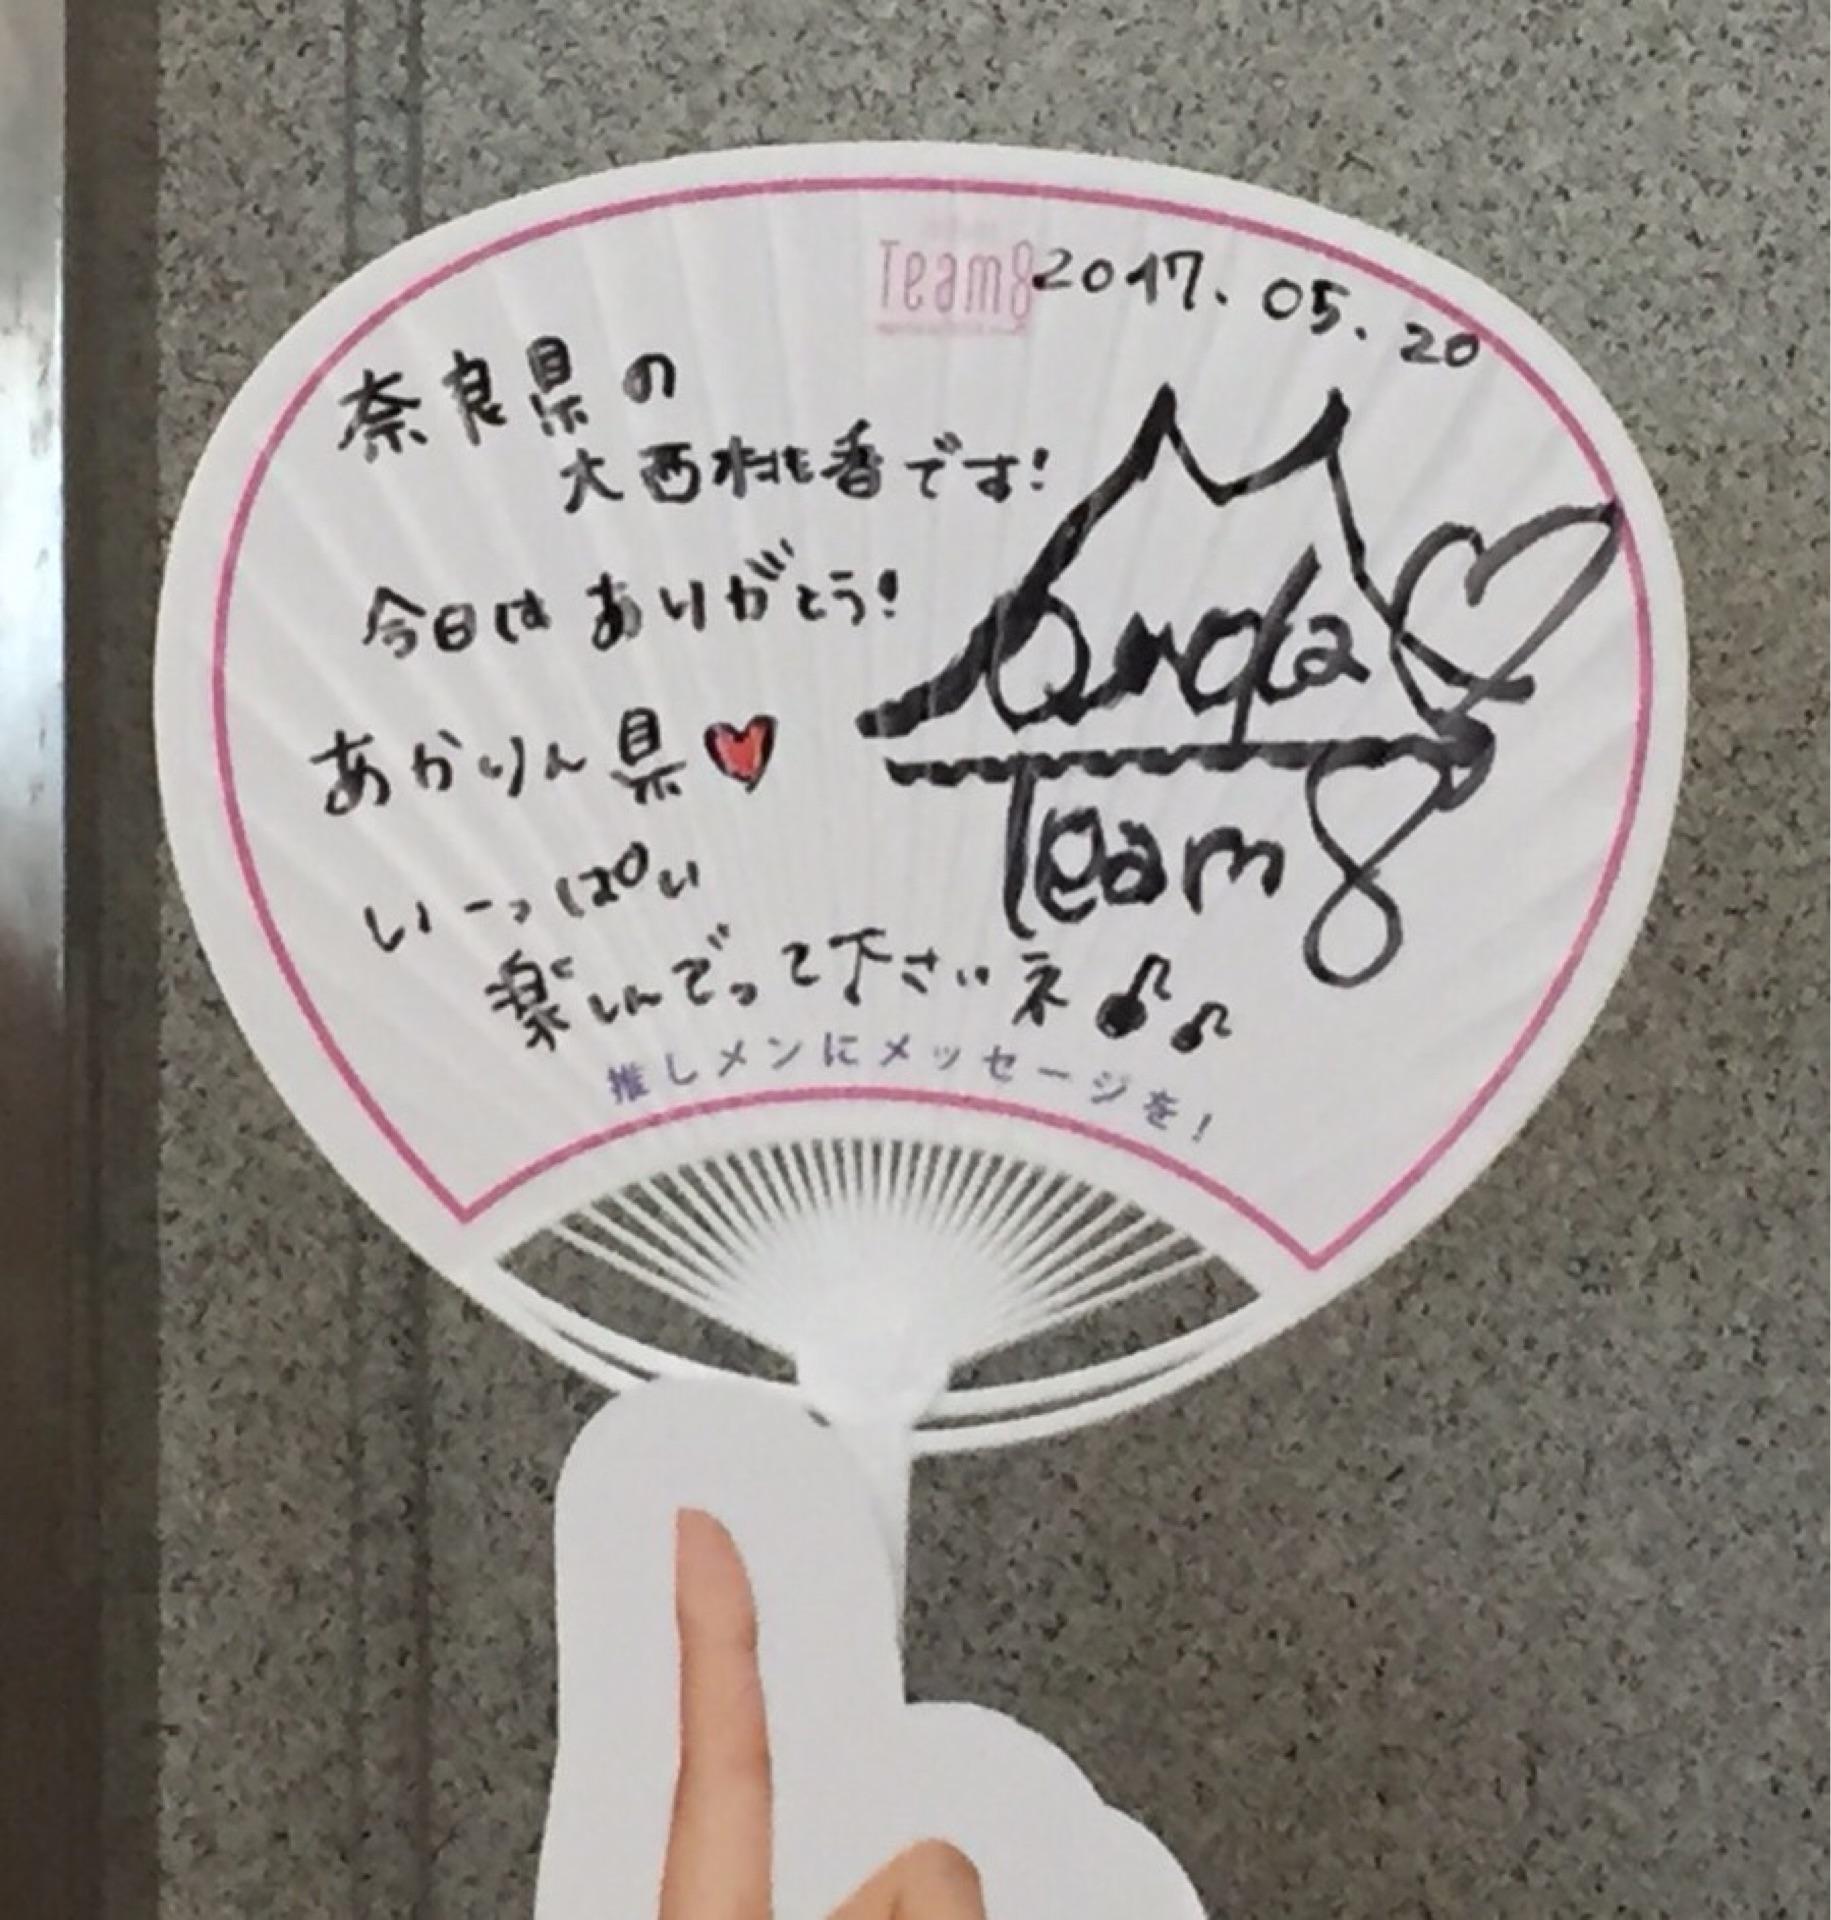 Team8
2017.05.20
奈良県の
大西桃香です!
今日はありがとう!
あかりん県
いーっぱい
楽しんでって下さいネ
Team 8
推しメンにメッセージを!